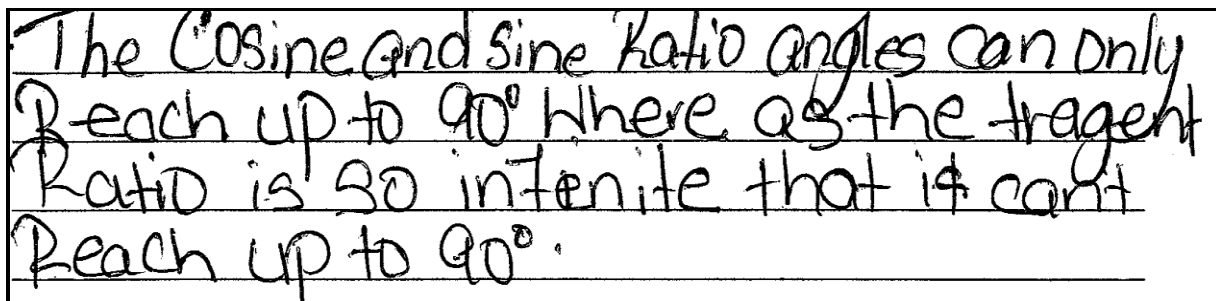 The Cosine and Sine Ratio angles can only
Reach up to 90° Where as the tragent
Ratio is so infenite that it can't
Reach up to 90°.